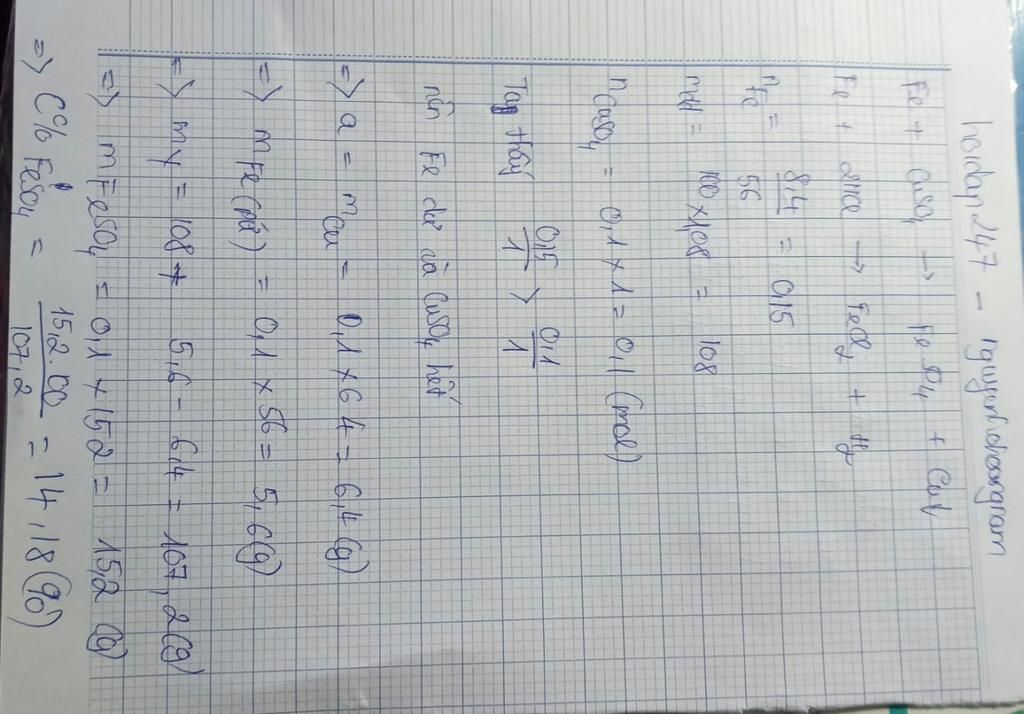 hoidap247 - nguyenhoangnam
Fe + CuSO4 → FeSO4 + Cu↓
Fe + 2HCl → FeCl2 + H2
nFe = 8,4/56 = 0,15
mdd = 100 × 1,08 = 108
nCuSO4 = 0,1 × 1 = 0,1 (mol)
Ta thấy 0,15/1 > 0,1/1
nên Fe dư và CuSO4 hết
=> a = mCu = 0,1 × 64 = 6,4 (g)
=> mFe (pứ) = 0,1 × 56 = 5,6 (g)
=> mY = 108 + 5,6 - 6,4 = 107,2 (g)
=> mFeSO4 = 0,1 × 152 = 15,2 (g)
=> C% FeSO4 = 15,2.100/107,2 = 14,18 (%)